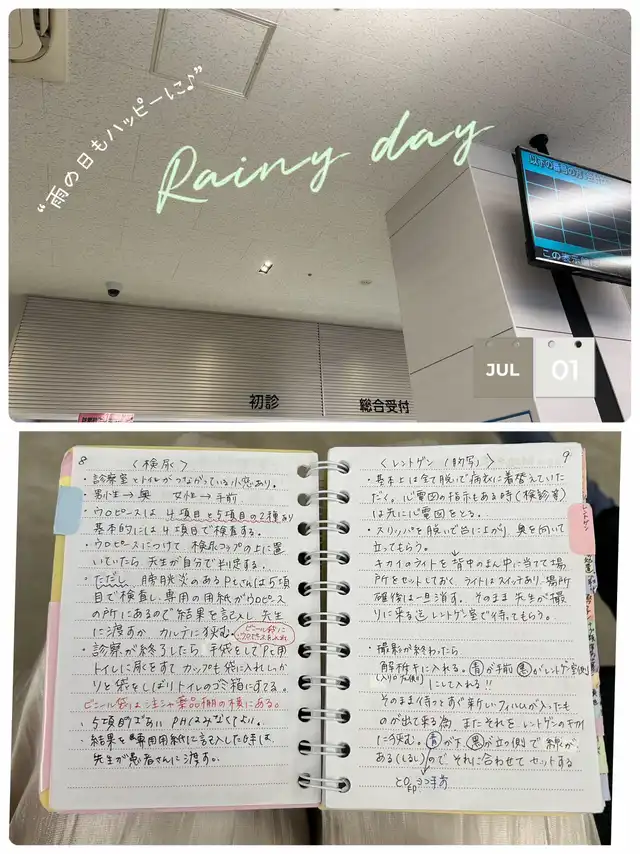 “雨の日もハッピーに♪”
Rainy day
この表示
JUL
01
初診
総合受付
8
〈検尿〉
・診察室とトイレがつながっている小窓あり。
男性→奥 女性→手前
・ウロピースは4項目と5項目の2種あり
基本的には4項目で検査する。
・ウロピースにつけて検尿コップの上に置
いていたら先生が自分で判定する。
・ただし、膀胱炎のあるPtさんは5項
目で検査し、専用の用紙がウロピース
の所にあるので結果を記入し先生
に渡すか カルテに挟む。
ビニール袋に
・診察が終了したら、手袋をしてPt用
トイレに尿をすて カップも袋に入れしっか
りと袋をしばりトイレのゴミ箱にすてる。
ビニール袋は注シャ薬品棚の横にある。
・5項目のばあい PHはみなくてよい。
・結果を専用用紙に記入した時は
先生が患者さんに渡す。
9
〈レントゲン(胸写)〉
・基本上は全て脱いで病衣に着替えていた
だく。心電図の指示もある時(検診等)
は先に心電図をとる。
・スリッパを脱いで台に上がり、奥を向いて
立ってもらう。
キカイのライトを背中のまん中に当てて場
所をセットしておく。ライトはスイッチあり、場所
確保後は一旦消す。そのまま先生が撮
りに来る迄レントゲン室で待ってもらう。
・撮影が終わったら
に入れる。青が手前 黒がレントゲン室側
にして入れる!!
そのまま待つとすぐ新しいフィルムが入ったも
のが出て来る為 またそれをレントゲンのキカイ
に挟む。青が下、黒が立つ側で線が
ある(しるし)ので それに合わせてセットする
レントゲン